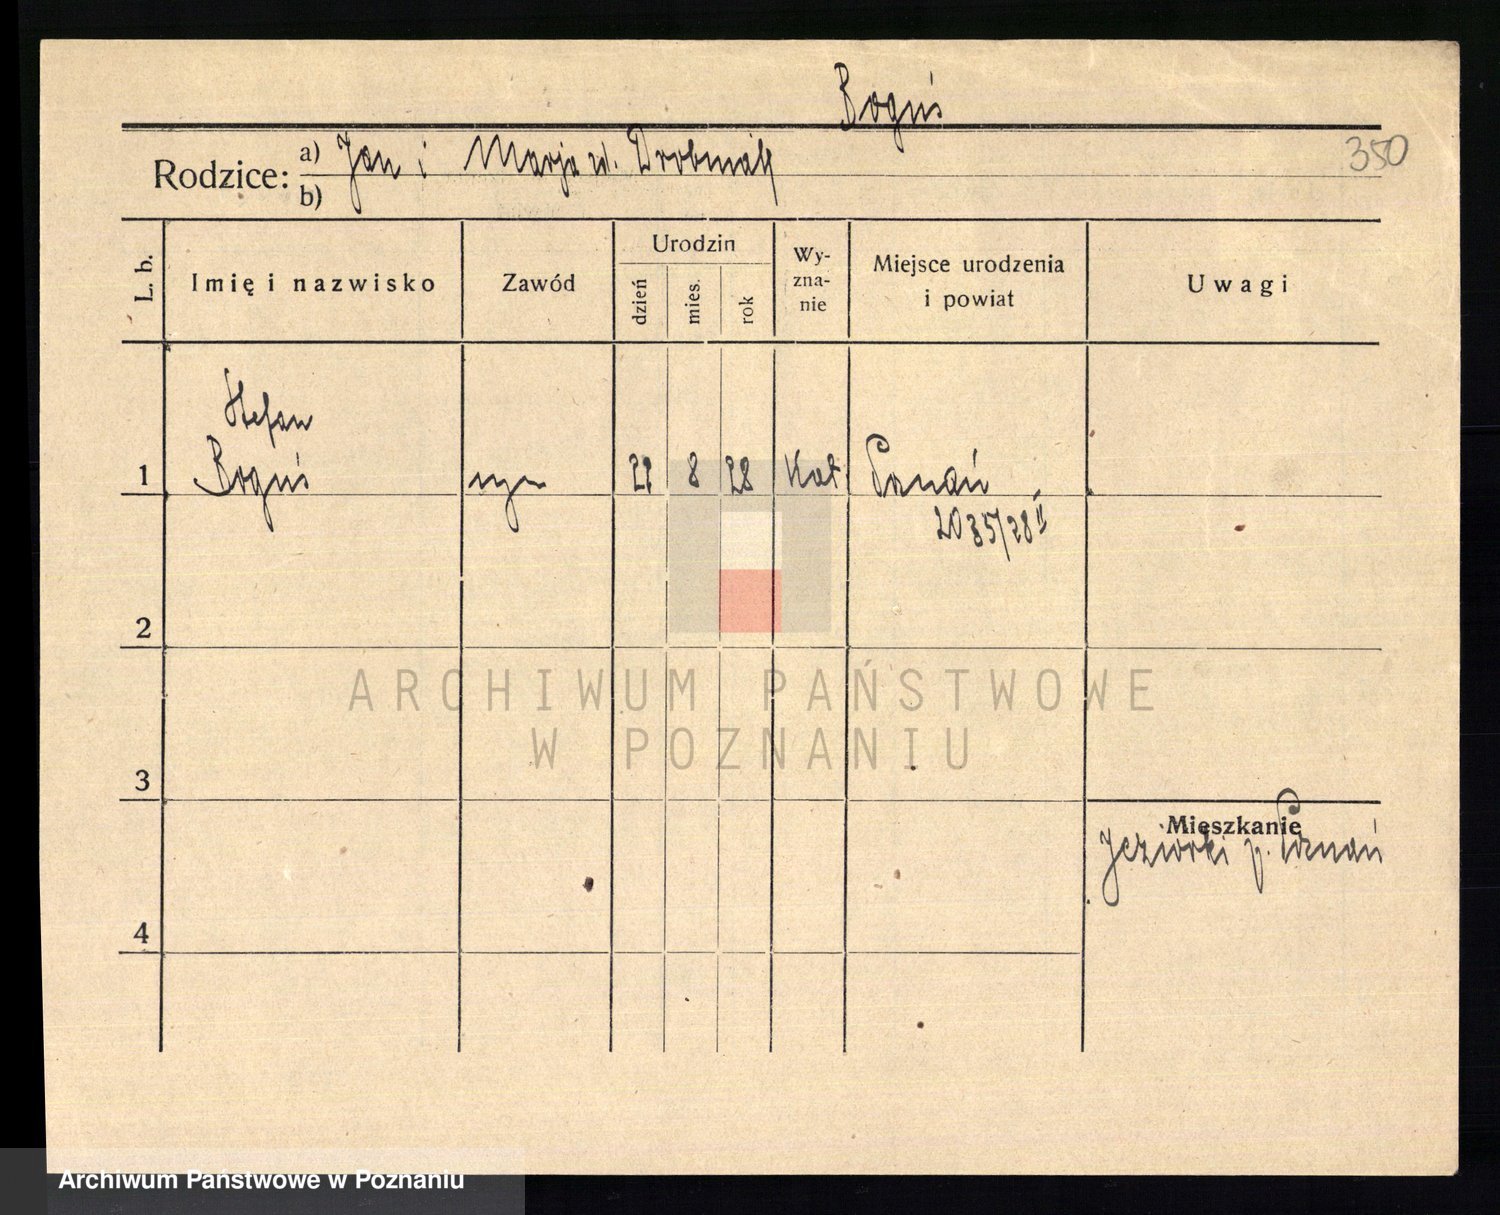 Boguś
350
Rodzice: a) Jan i Marja w. Drobniak
b)
L. b.
Imię i nazwisko
Zawód
Urodzin
dzień
mies.
rok
Wy-
zna-
nie
Miejsce urodzenia
i powiat
Uwagi
Stefan
1 Boguś syn 8 28 Kat Poznań
2035/28 II
2
ARCHIWUM PAŃSTWOWE
W POZNANIU
3
Mieszkanie
Jeziorki p. Poznań
4
Archiwum Państwowe w Poznaniu